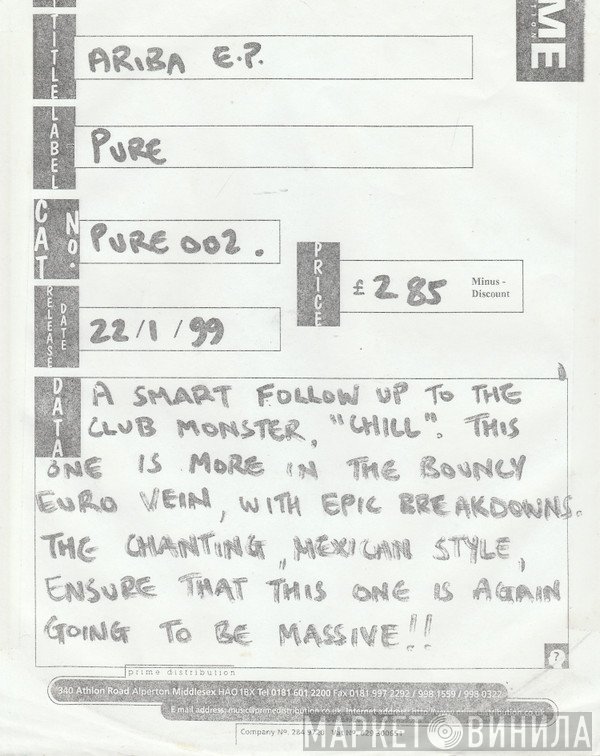 ME
TITLE
ARIBA E.P.
LABEL
PURE
CAT No.
PURE 002.
PRICE
£ 2 85
Minus - Discount
RELEASE DATE
22/1/99
DATA
A SMART FOLLOW UP TO THE
CLUB MONSTER, "CHILL". THIS
ONE IS MORE IN THE BOUNCY
EURO VEIN, WITH EPIC BREAKDOWNS.
THE CHANTING, MEXICAN STYLE,
ENSURE THAT THIS ONE IS AGAIN
GOING TO BE MASSIVE!!
?
prime distribution
340 Athlon Road Alperton Middlesex HAO 1BX Tel 0181 601 2200 Fax 0181 997 2292 / 998 1559 / 998 0322
E mail address: music@primedistribution.co.uk. Internet address:
Company Nº.
МАРКЕТ ВИНИЛА